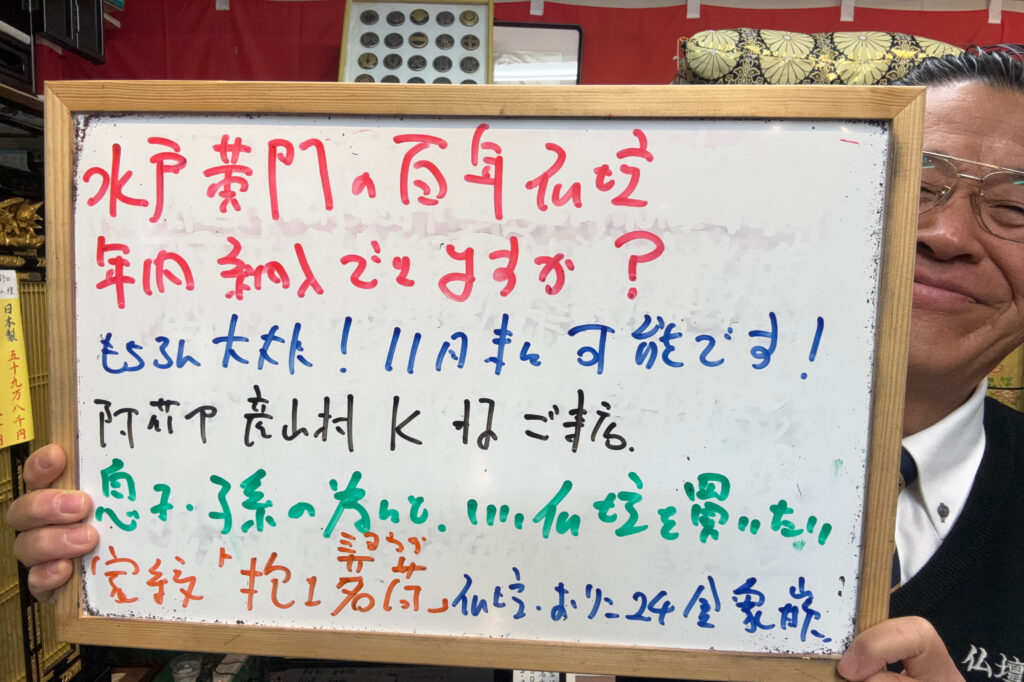 水戸黄門の百年仏壇
年内納入できますか？
もちろん大丈夫！11月末可能です！
阿蘇郡 産山村 K様ご来店.
息子・孫の為にと、いい仏壇を買いたい
みょうが
家紋「抱き茗荷」仏壇・おりん24金象嵌
日本製
五十九万八千円
仏壇